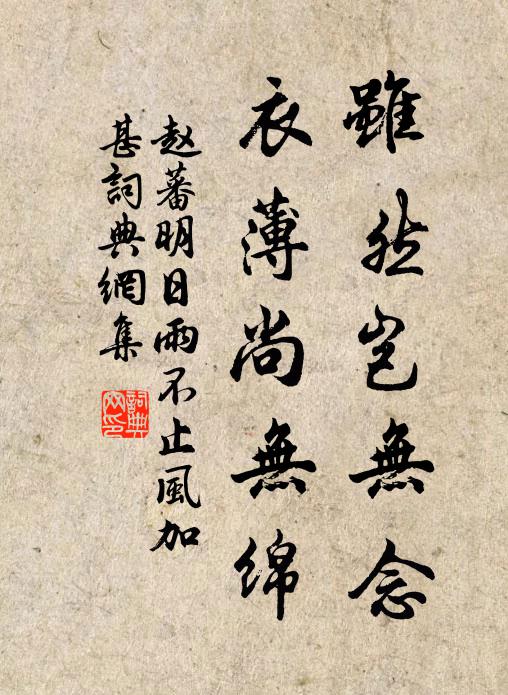 雖然豈無念
衣薄尚無綿
赵蕃明日雨不止風加
甚詞典網集
詞典
网印